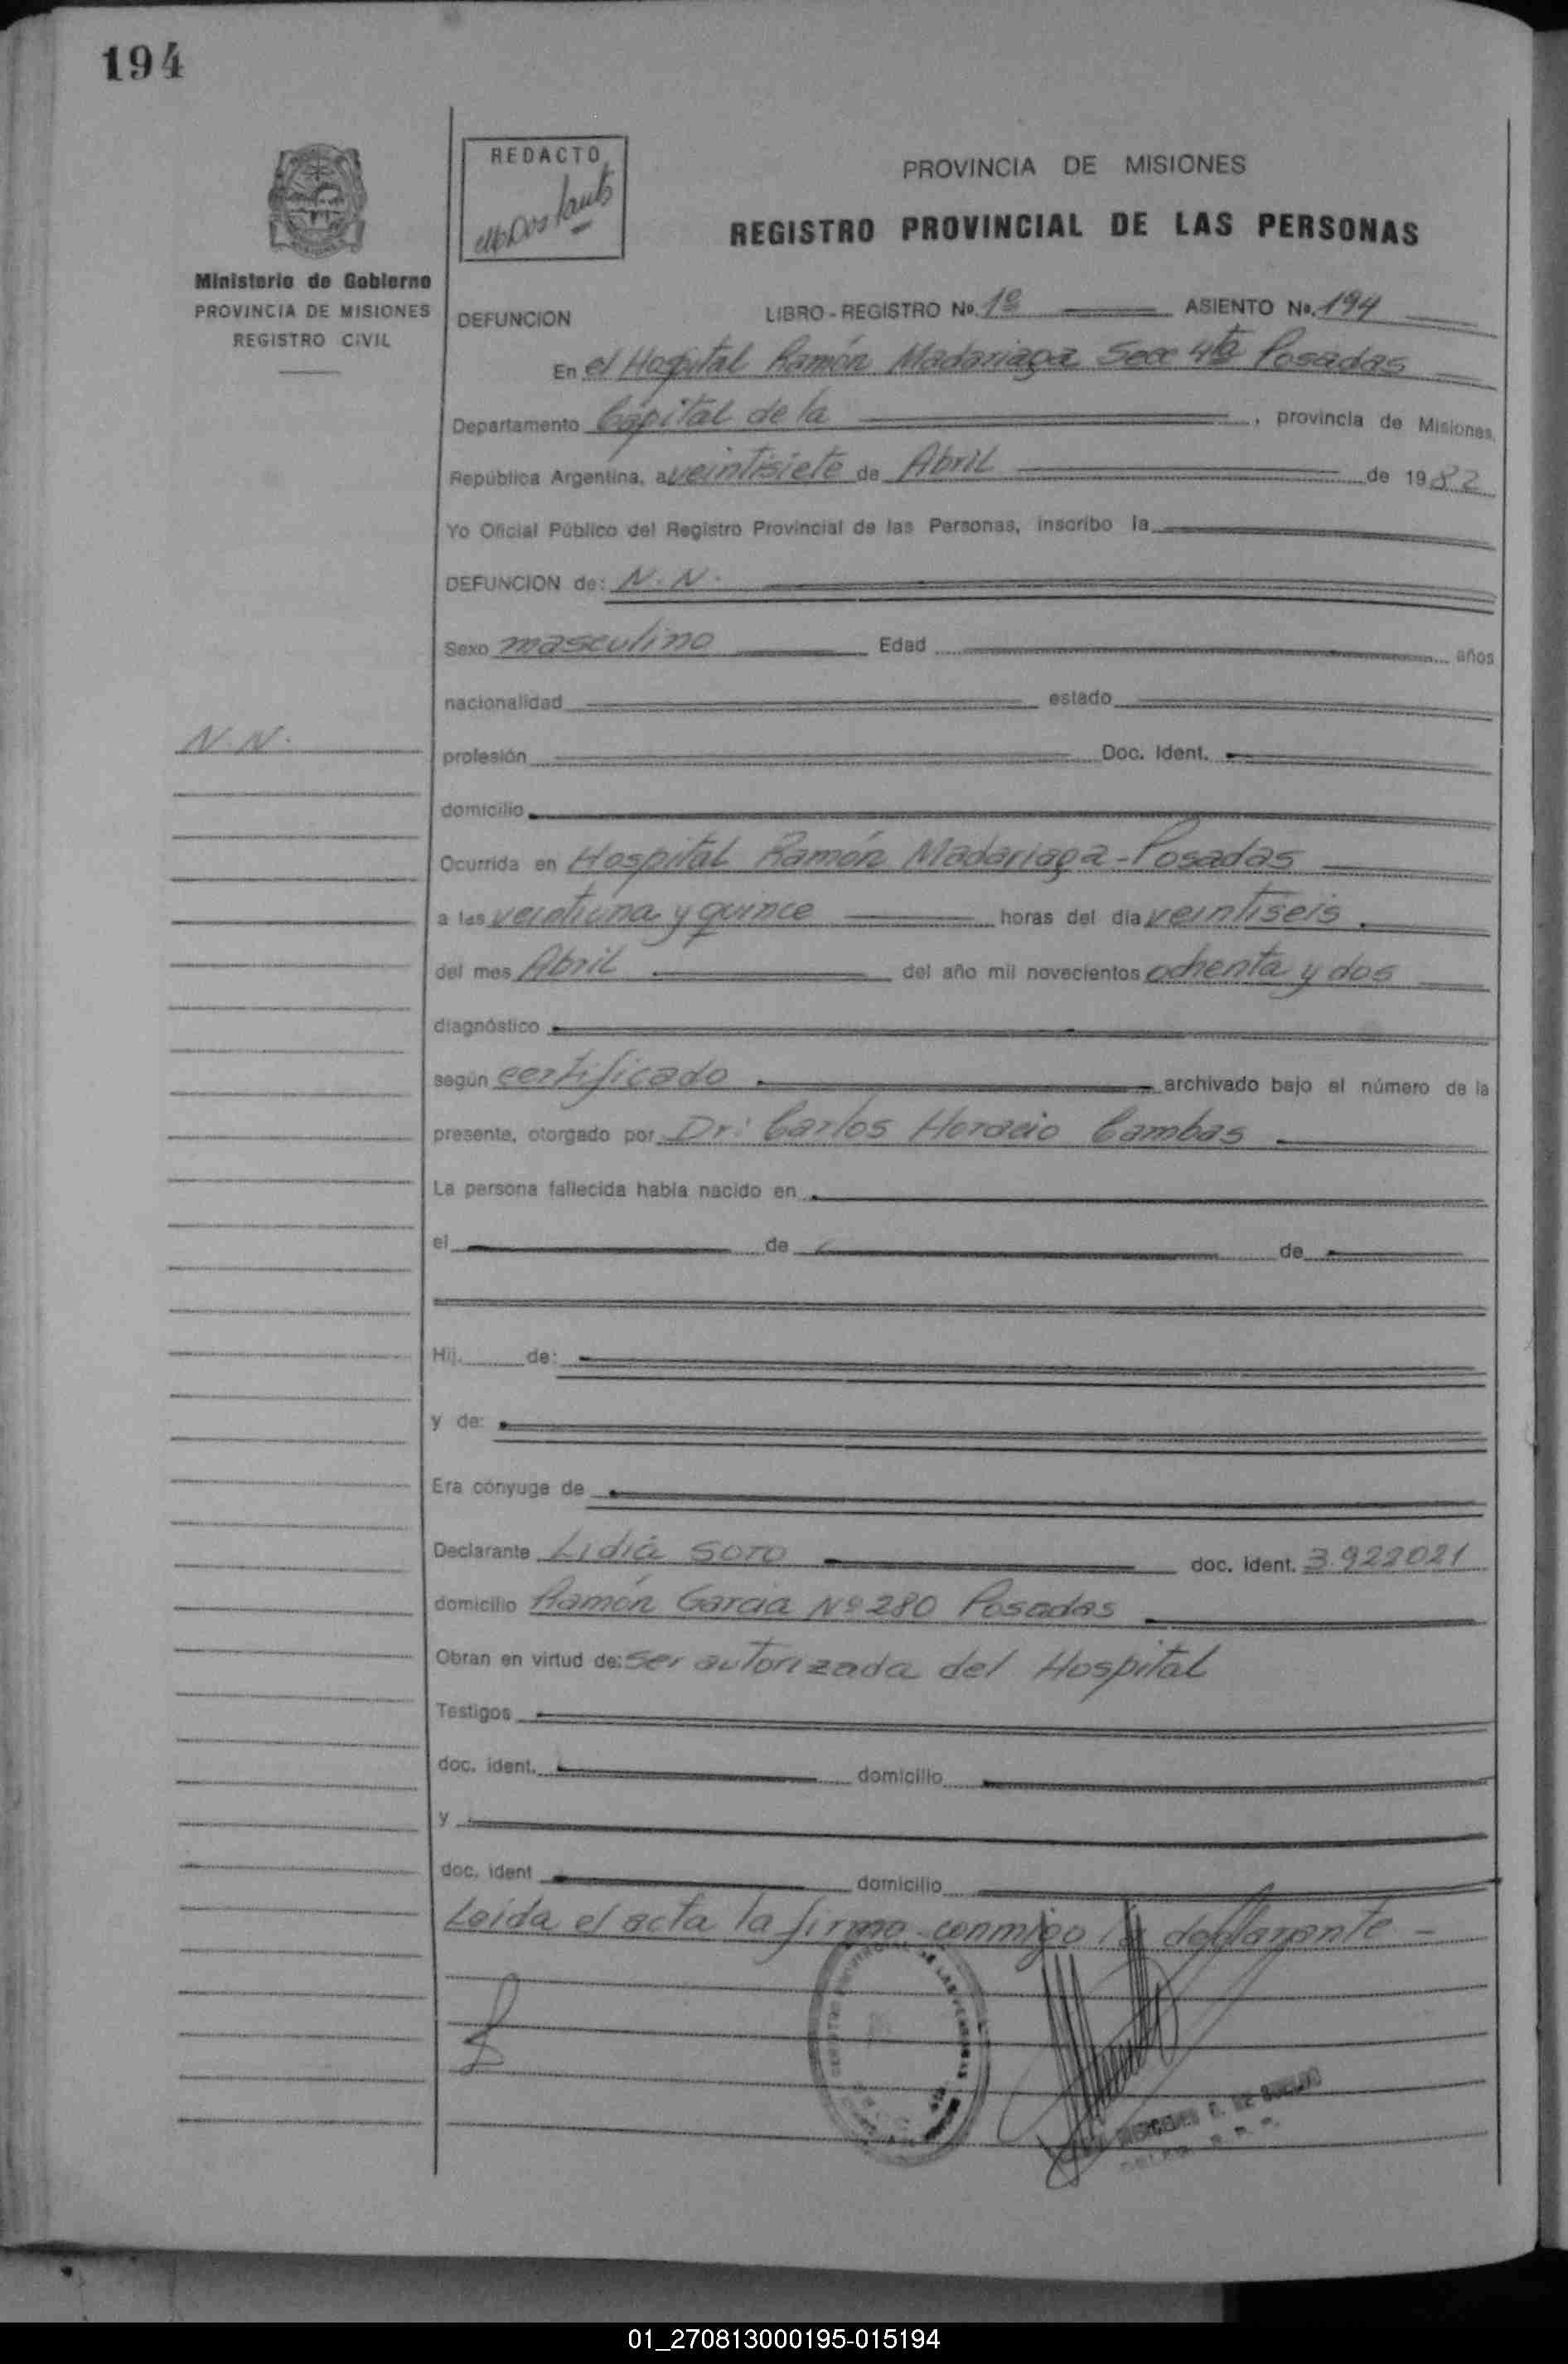 194
REDACTO
PROVINCIA DE MISIONES
REGISTRO PROVINCIAL DE LAS PERSONAS
Ministerio de Gobierno
PROVINCIA DE MISIONES
REGISTRO CIVIL
DEFUNCION LIBRO - REGISTRO No. 1º ASIENTO No. 194
En el Hospital Ramón Madariaga Secc 4ta Posadas
Departamento Capital de la , provincia de Misiones,
República Argentina, a veintisiete de Abril de 1982
Yo Oficial Público del Registro Provincial de las Personas, inscribo la
DEFUNCION de: N. N.
Sexo masculino Edad años
nacionalidad estado
N. N.
profesión Doc. Ident.
domicilio
Ocurrida en Hospital Ramón Madariaga - Posadas
a las veintiuna y quince horas del día veintiseis
del mes Abril del año mil novecientos ochenta y dos
diagnóstico
según certificado archivado bajo el número de la
presente, otorgado por Dr: Carlos Horacio Cambas
La persona fallecida había nacido en
el de de
Hij. de:
y de:
Era cónyuge de
Declarante Lidia SOTO doc. ident. 3.922021
domicilio Ramón Garcia Nº 280 Posadas
Obran en virtud de: ser autorizada del Hospital
Testigos
doc. ident. domicilio
y
doc. ident domicilio
Leída el acta la firma conmigo la declarante -
01_270813000195-015194